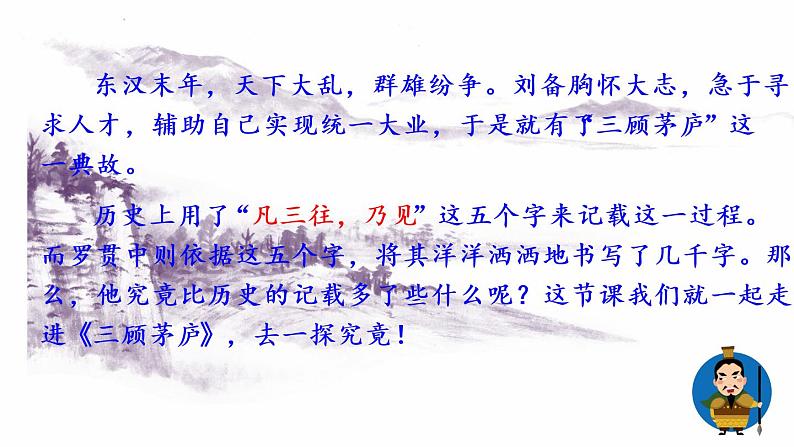 东汉末年，天下大乱，群雄纷争。刘备胸怀大志，急于寻
求人才，辅助自己实现统一大业，于是就有了“三顾茅庐”这
一典故。
历史上用了“凡三往，乃见”这五个字来记载这一过程。
而罗贯中则依据这五个字，将其洋洋洒洒地书写了几千字。那
么，他究竟比历史的记载多了些什么呢？这节课我们就一起走
进《三顾茅庐》，去一探究竟！